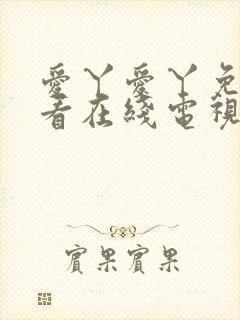 愛丫愛丫免
看在綫電視
賓果賓果